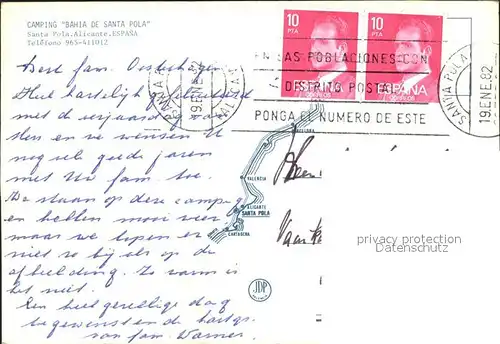 CAMPING "BAHIA DE SANTA POLA"
Santa Pola.Alicante.ESPAÑA
Teléfono 965-411012
Best fam.
Heel hartelijk gefeliciteerd
met de verjaardag
en we wensen U
nog vele goede jaren
met Uw fam. toe.
We staan op deze camping
en hebben mooi weer
maar we lopen er
niet zo bij als op de
afbeelding. Zo warm is
het niet.
Een heel gezellige dag
toegewenst en de hartgr.
van fam.
10
PTA
10
PTA
ESPAÑA
ESPAÑA
EN LAS POBLACIONES CON
DISTRITO POSTAL
PONGA EL NUMERO DE ESTE
19.ENE.82
SANTA POLA
19.ENE.82
BARCELONA
VALENCIA
ALICANTE
SANTA POLA
CARTAGENA
JDP
privacy protection
Datenschutz